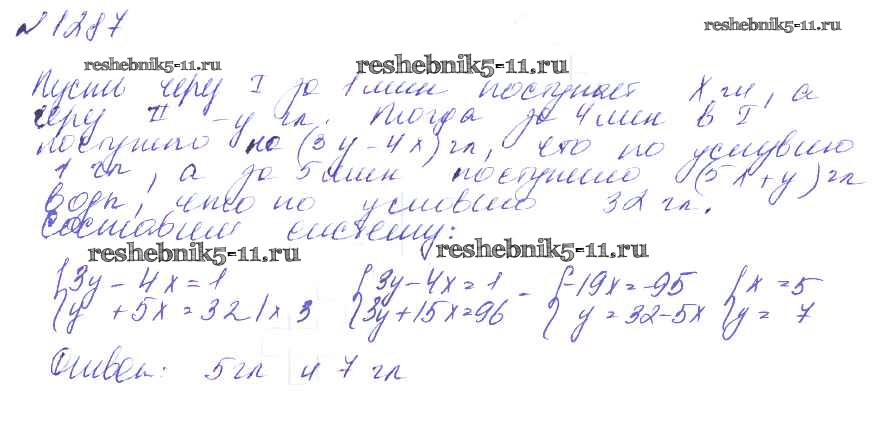 №1287
reshebnik5-11.ru
reshebnik5-11.ru
reshebnik5-11.ru
Пусть через I за 1 мин поступает x гл, а
через II - y гл. Тогда за 4 мин в I
поступило на (3y - 4x) гл, что по условию
1 гл, а за 5 мин поступило (5x + y) гл
воды, что по условию 32 гл.
Составим систему:
reshebnik5-11.ru
reshebnik5-11.ru
{3y - 4x = 1 {3y - 4x = 1 - {-19x = -95 {x = 5
{y + 5x = 32 | x 3 {3y + 15x = 96 {y = 32 - 5x {y = 7
Ответ: 5 гл и 7 гл